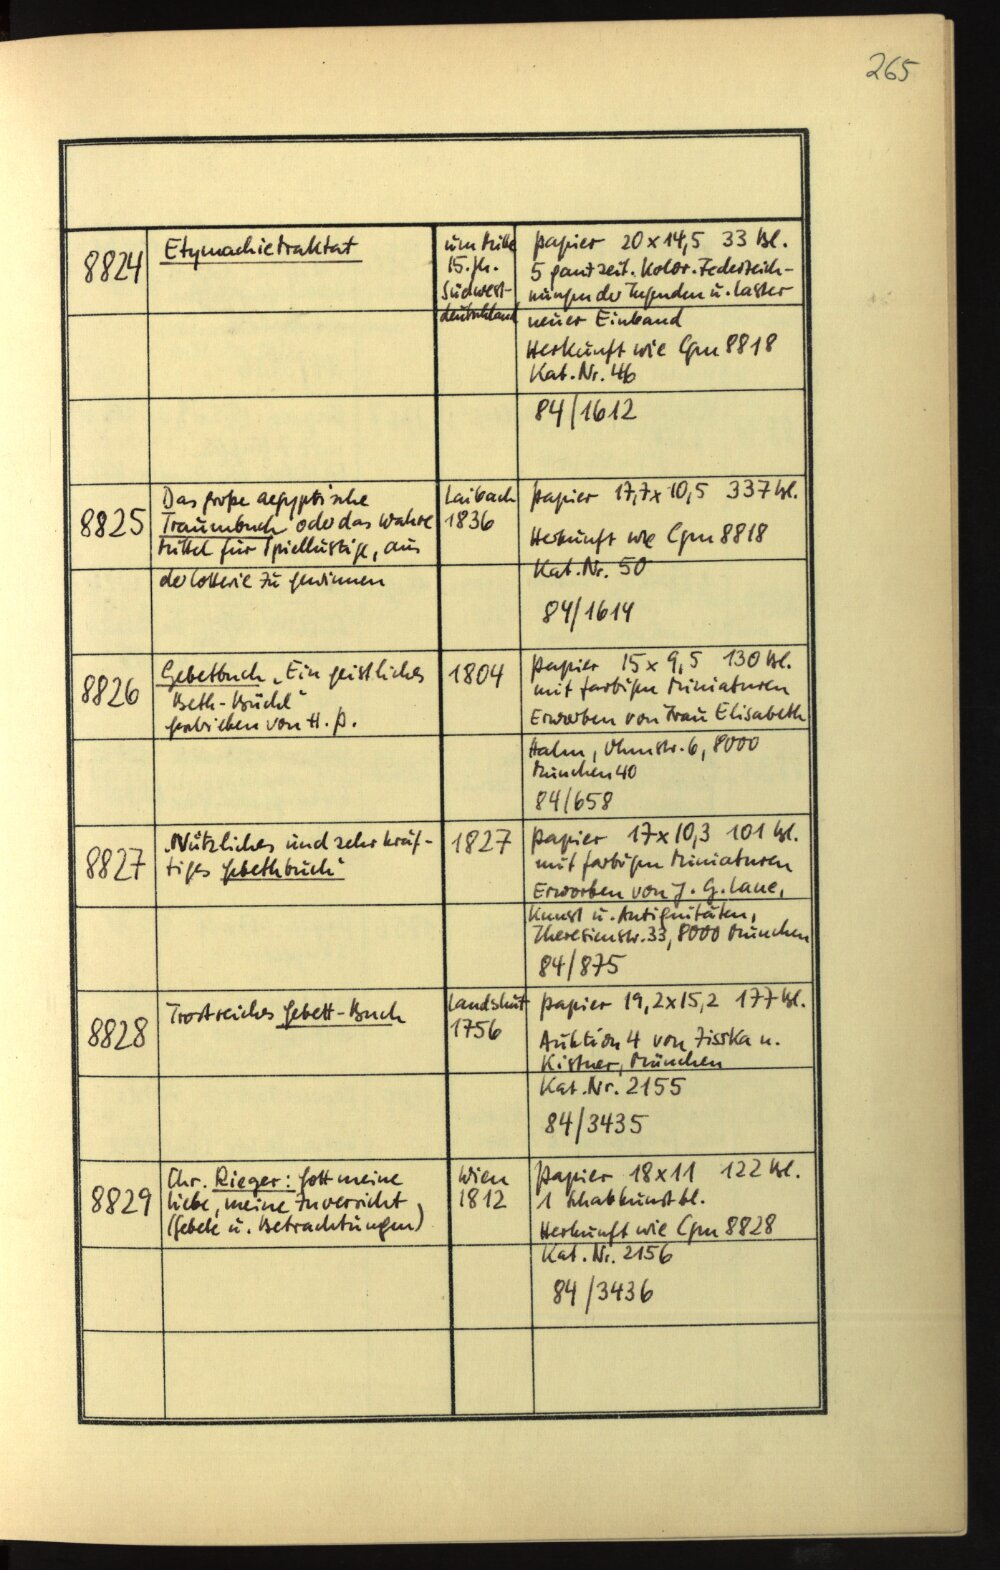 265
8824
Etymachietraktat
um Mitte
15. Jh.
Südwest-
deutschland
Papier 20 x 14,5 33 Bl.
5 ganzseit. kolor. Federzeich-
nungen der Tugenden u. Laster
neuer Einband
Herkunft wie Cgm 8818
Kat. Nr. 46
84/1612
8825
Das große aegyptische
Traumbuch oder das wahre
Mittel für Spiellustige, aus
der Lotterie zu gewinnen
Laibach
1836
Papier 17,7 x 10,5 337 Bl.
Herkunft wie Cgm 8818
Kat. Nr. 50
84/1614
8826
Gebetbuch „Ein geistliches
Beth-Büchl“
geschrieben von H. P.
1804
Papier 15 x 9,5 130 Bl.
mit farbigen Miniaturen
Erworben von Frau Elisabeth
Halm, Ohmstr. 6, 8000
München 40
84/658
8827
„Nützliches und sehr kräf-
tiges Gebethbuch“
1827
Papier 17 x 10,3 101 Bl.
mit farbigen Miniaturen
Erworben von J. G. Laue,
Kunst u. Antiquitäten,
Theresienstr. 33, 8000 München
84/875
8828
Trostreiches Gebett-Buch
Landshut
1756
Papier 19,2 x 15,2 177 Bl.
Auktion 4 von Zisska u.
Kistner, München
Kat. Nr. 2155
84/3435
8829
Chr. Rieger: Gott meine
Liebe, meine Zuversicht
(Gebete u. Betrachtungen)
Wien
1812
Papier 18 x 11 122 Bl.
1 Schabkunstbl.
Herkunft wie Cgm 8828
Kat. Nr. 2156
84/3436